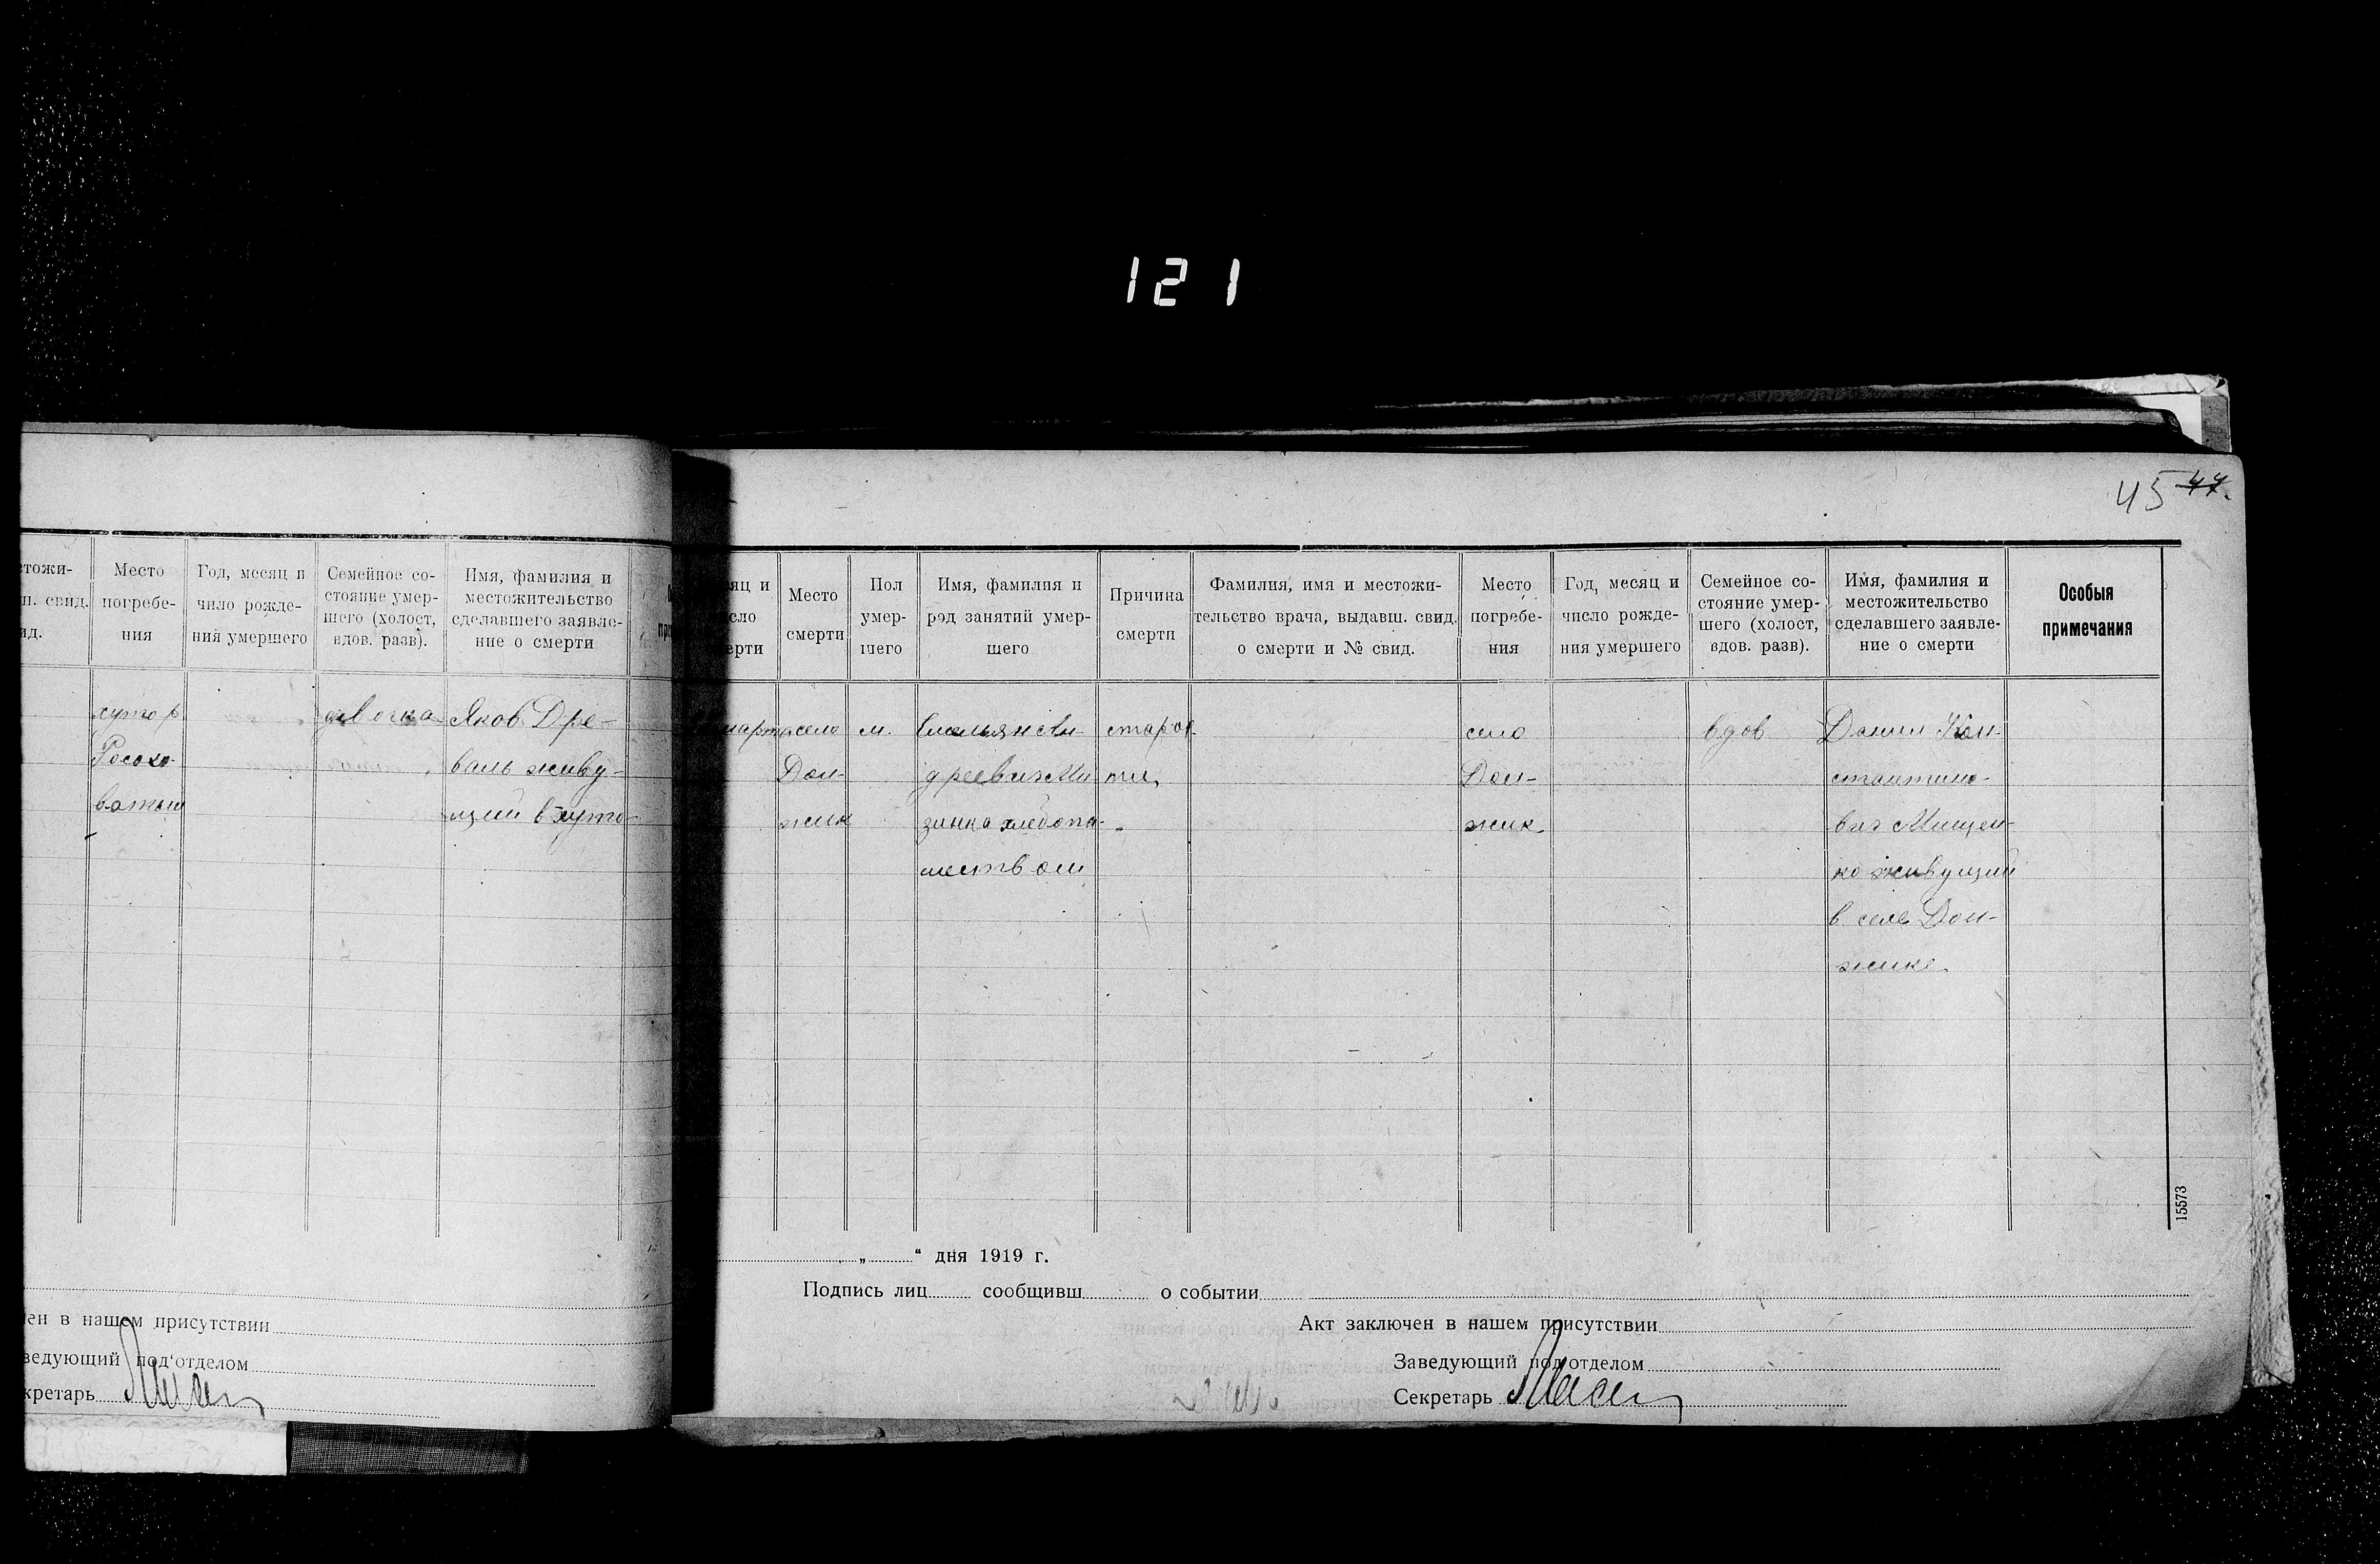 121
45 47.
стожи-
п. свид.
ид.
Место
погребе-
ния
Год, месяц и
чило рожде-
ния умершего
Семейное со-
стояние умер-
шего (холост,
вдов. разв).
Имя, фамилия и
местожительство
сделавшего заявле-
ние о смерти
хутор
Росохо-
ватый
девочка
Яков Дре-
валь живу-
щий в хуто-
ен в нашем присутствии
ведующий под'отделом
кретарь
яц и
сло
ерти
Место
смерти
Пол
умер-
шего
Имя, фамилия и
род занятий умер-
шего
Причина
смерти
Фамилия, имя и местожи-
тельство врача, выдавш. свид.
о смерти и № свид.
Место
погребе-
ния
Год, месяц и
число рожде-
ния умершего
Семейное со-
стояние умер-
шего (холост,
вдов. разв).
Имя, фамилия и
местожительство
сделавшего заявле-
ние о смерти
Особыя
примечания
марта
село
Дол-
жик
м.
Емельян Ан-
дреевич
хлебопа-
шеством
старос-
ти
село
Дол-
жик
вдов
Данил Кон-
стантино-
вич Мищен-
ко живущий
в селе Дол-
жике.
15573
„ “ дня 1919 г.
Подпись лиц сообщивш о событии
Акт заключен в нашем присутствии
Заведующий под'отделом
Секретарь